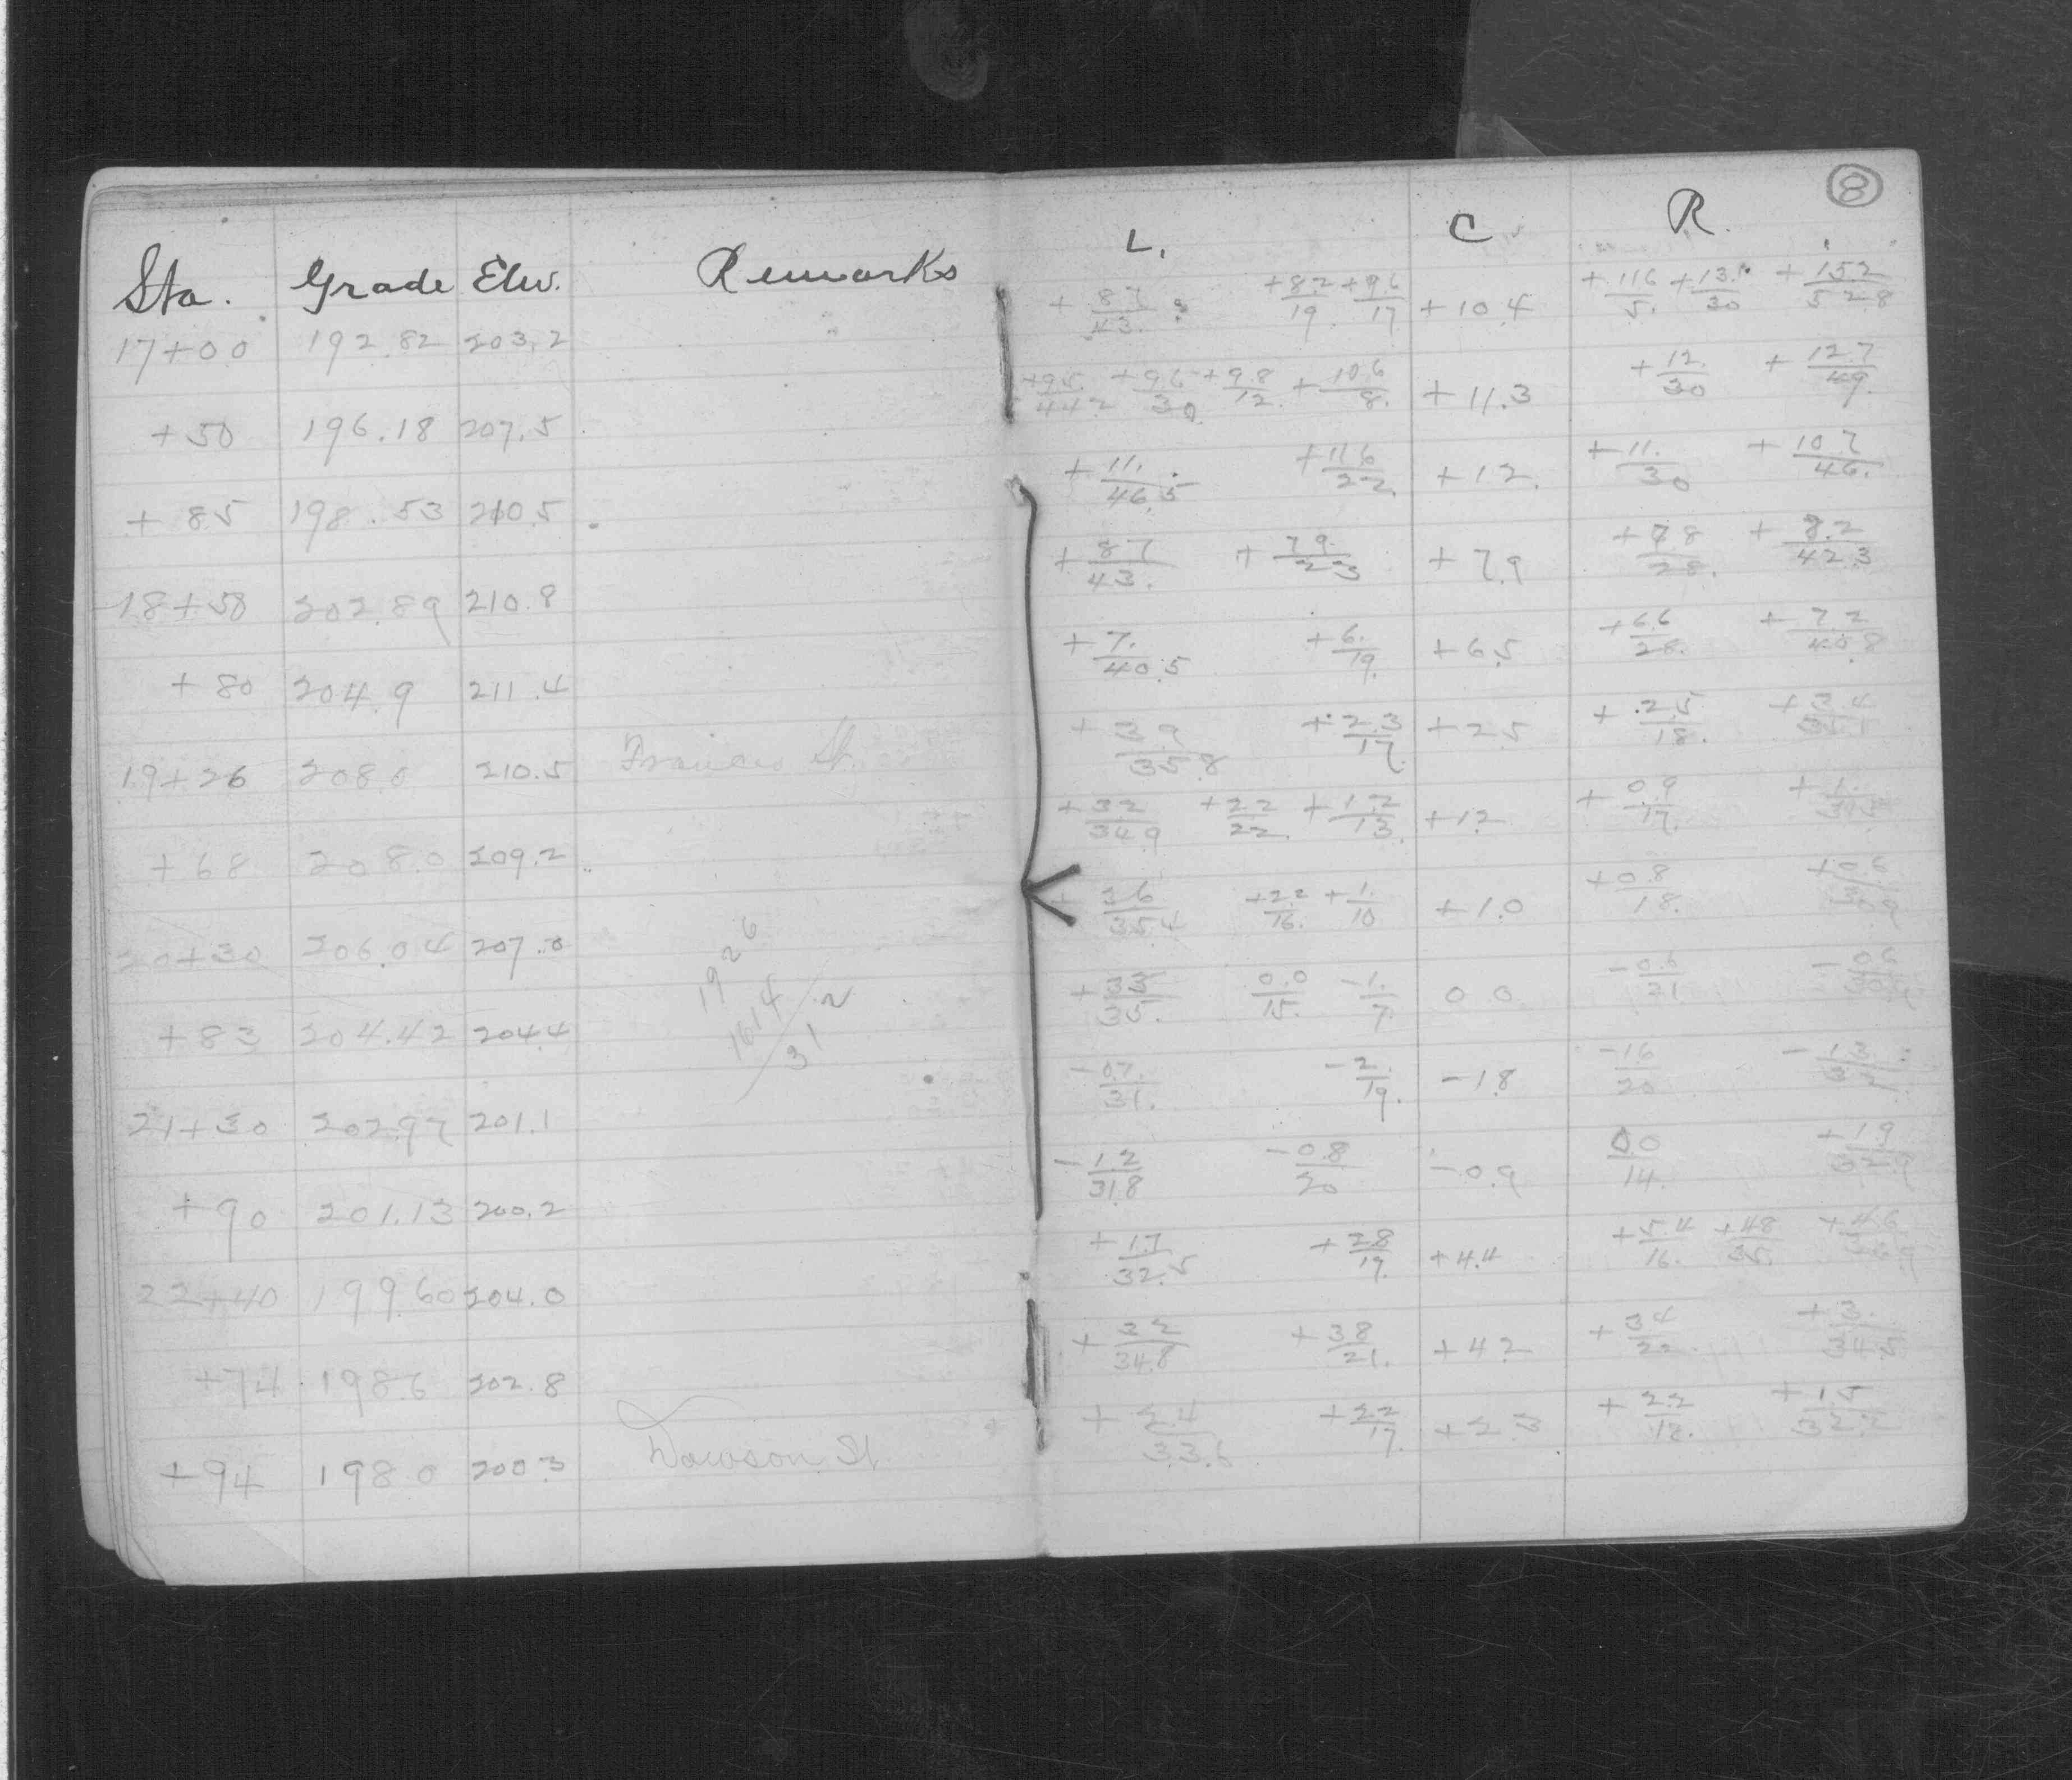 8
Sta. Grade Elev. Remarks L. C R.
17+00 192.82 203.2 +8.7/43. +8.2/19. +9.6/17 +10.4 +11.6/5. +13.1/30 +15.2/52.8
+50 196.18 207.5 +9.5/44.2 +9.6/30. +9.8/12. +10.6/8. +11.3 +12./30 +12.7/49.
+85 198.53 210.5 +11./46.5 +11.6/22. +12. +11./30 +10.7/46.
18+50 202.89 210.8 +8.7/43. +7.9/23 +7.9 +7.8/28. +8.2/42.3
+80 204.9 211.4 +7./40.5 +6./19. +6.5 +6.6/28. +7.2/40.8
19+26 208.0 210.5 Francis St. +3.9/35.8 +2.3/17. +2.5 +2.5/18. +3.4/35.1
+68 208.0 209.2 +3.2/34.9 +2.2/22. +1.2/13. +1.2 +0.9/17. +1./31.5
20+30 206.04 207.0 +3.6/35.4 +2.2/16. +1./10 +1.0 +0.8/18. +0.6/30.9
+83 204.42 204.4 +3.3/35. 0.0/15. -1./7. 0.0 -0.6/21 -0.6/30.9
21+30 202.97 201.1 -0.7/31. -2./19. -1.8 -1.6/20 -1.3/
+90 201.13 200.2 -1.2/31.8 -0.8/20 -0.9 0.0/14. +1.9/32.9
22+40 199.60 204.0 +1.7/32.5 +2.8/17. +4.4 +5.4/16. +4.8/35. +4.6/36.9
+74 198.6 202.8 +3.2/34.8 +3.8/21. +4.2 +3.4/22. +3./34.5
+94 198.0 200.3 Dawson St +2.4/33.6 +2.2/17. +2.3 +2.2/18. +1.5/32.2
1926
1614/2
31